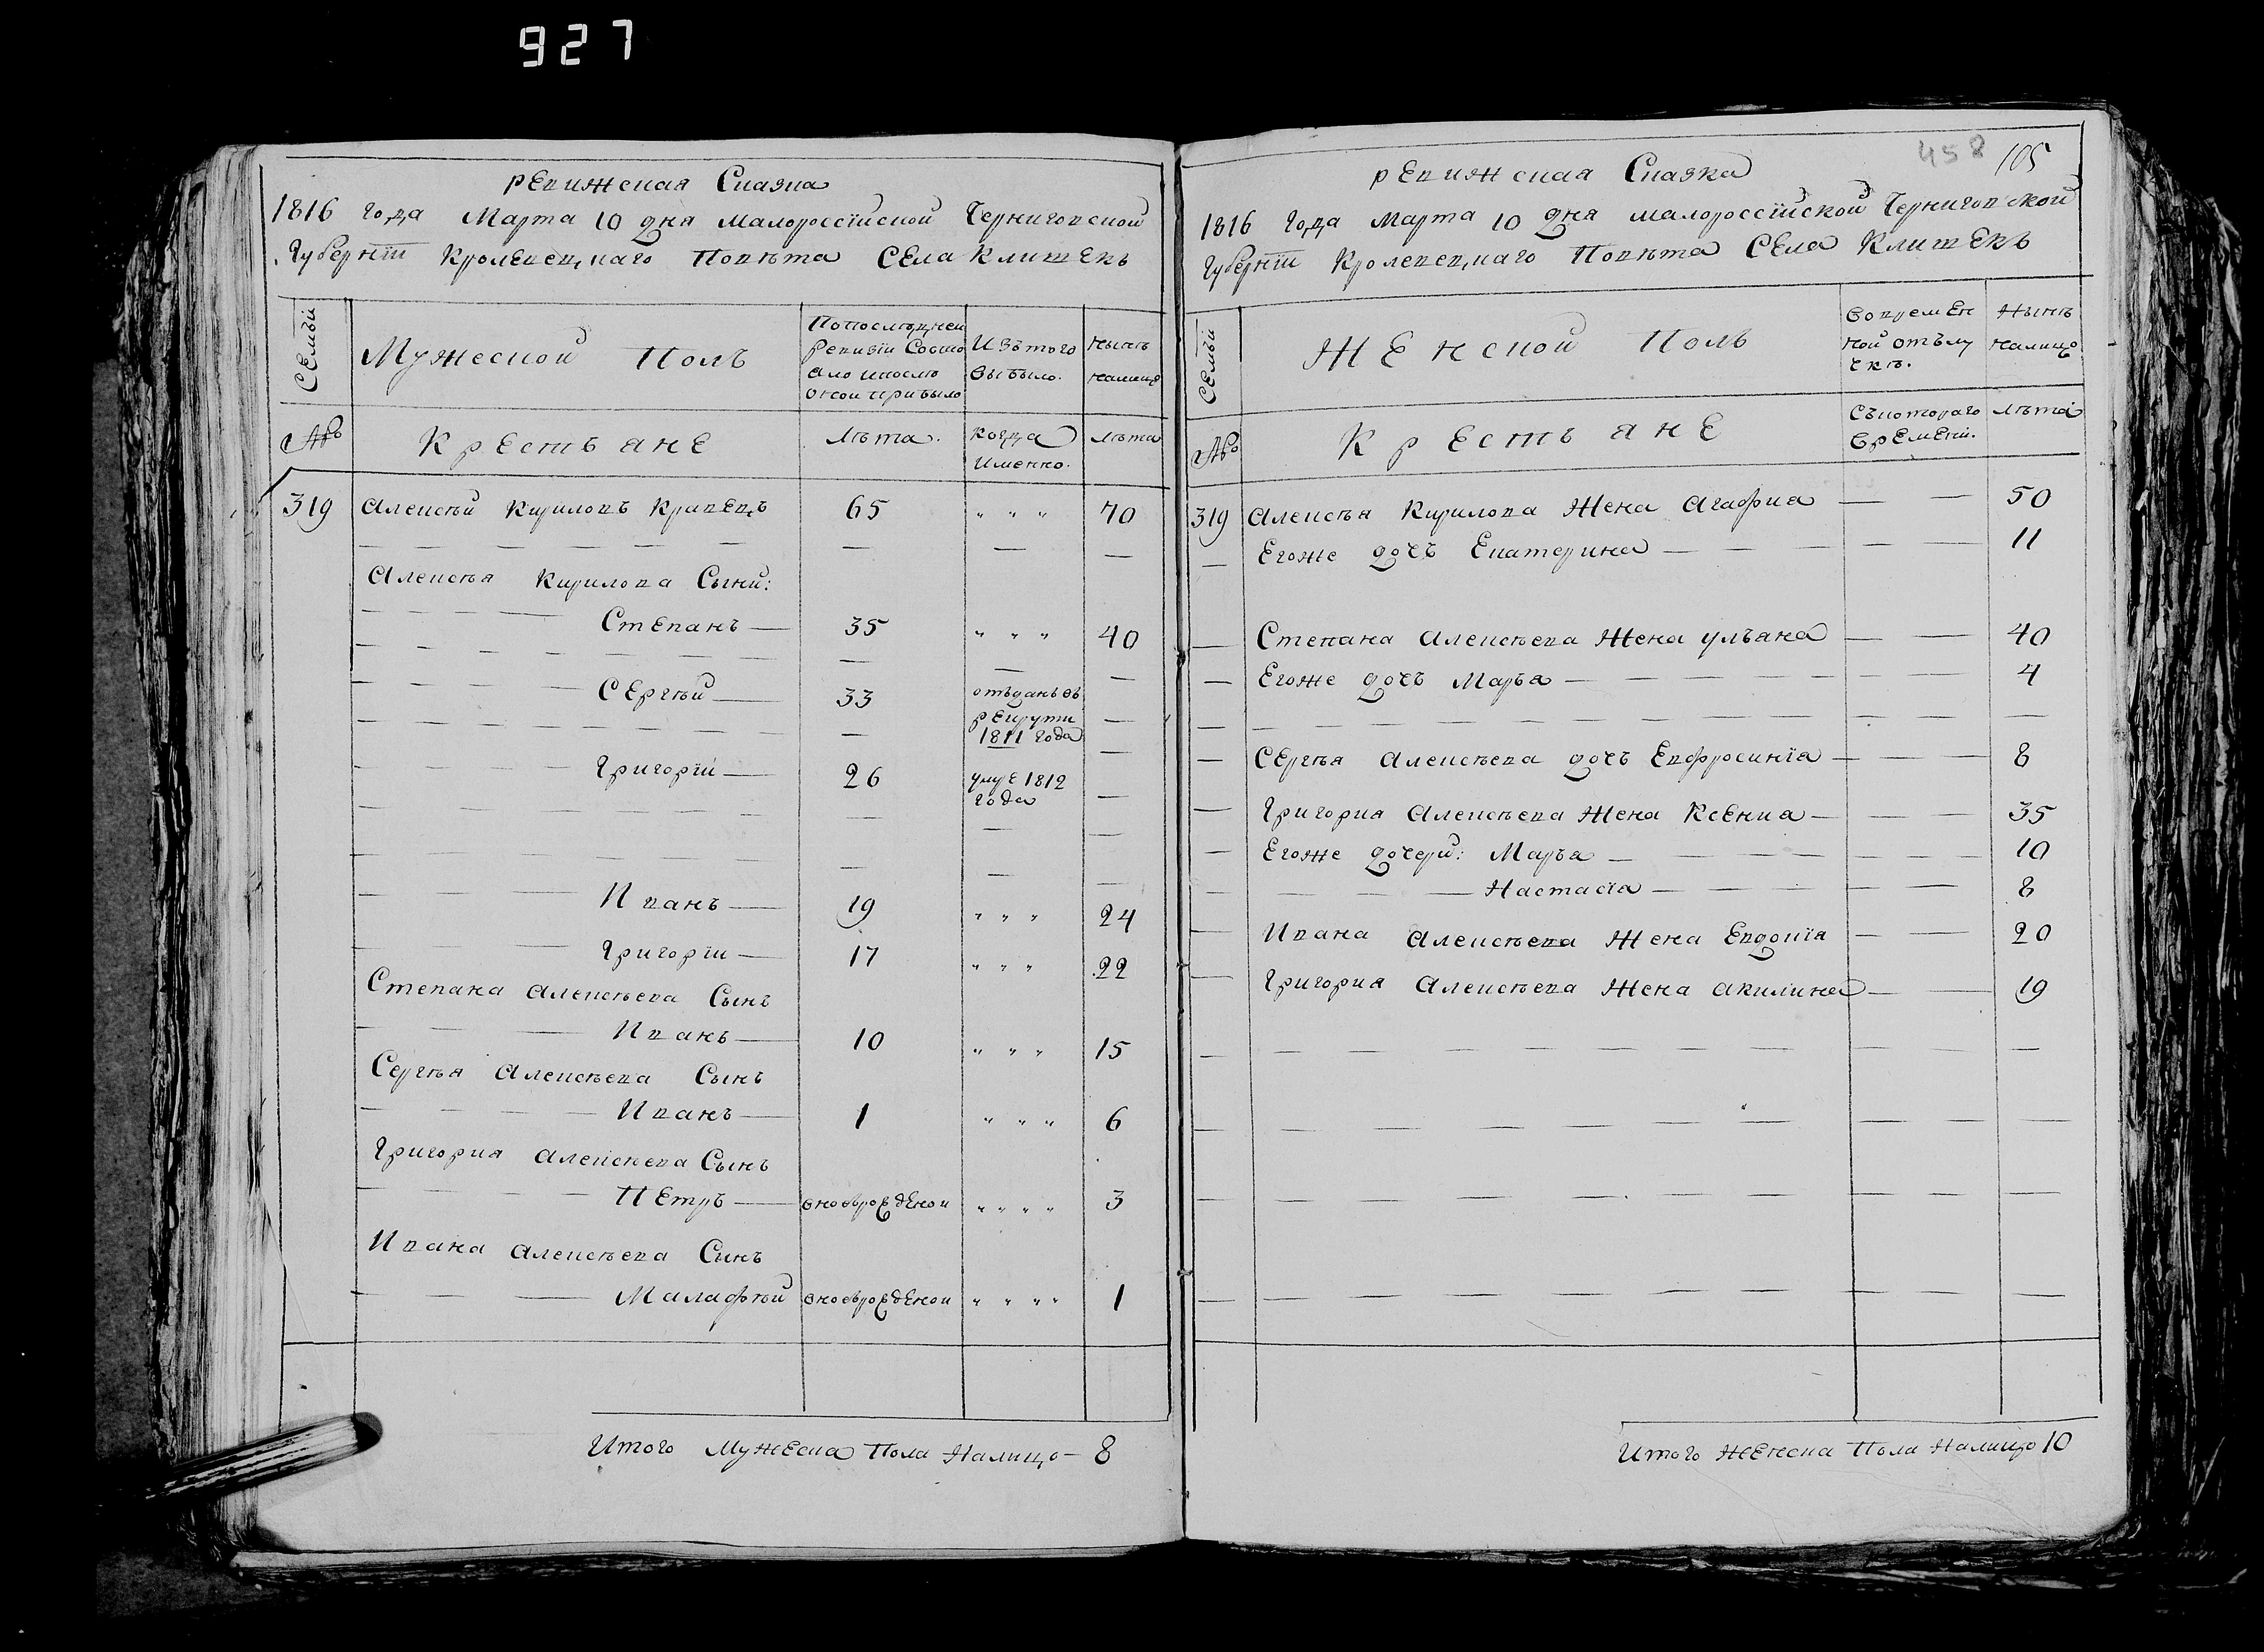 927
Ревижская Сказка
1816 года Марта 10 дня Малороссїйской Черниговской
Губернїи Кролевецкаго Повѣта Села Клишекъ
Семьи
Мужеской Полъ
Попослѣдней
Ревизїи Состо
яло ипослѣ
оной прибыло
Изътого
Выбыло.
Нынѣ
налицо
№
Крестьяне
Лѣта.
Когда
именно.
Лѣта
319 Алексѣй Кириловъ Кравецъ 65 " " " 70
Алексѣя Кирилова Сыни:
Степанъ 35 " " " 40
Сергѣй 33 отъданъ въ
рекрути
1811 года
Григорїй 26 умре 1812
года
Иванъ 19 " " " 24
Григорїй 17 " " " 22
Степана Алексѣева Сынъ
Иванъ 10 " " " 15
Сергѣя Алексѣева Сынъ
Иванъ 1 " " " 6
Григория Алексѣева Сынъ
Петръ вновьрожденой " " " " 3
Ивана Алексѣева Сынъ
Малафѣй вновьрожденой " " " " 1
Итого Мужеска Пола Налицо — 8
458 105
Ревижская Сказка
1816 Года Марта 10 дня Малороссїйской Черниговской
Губернїи Кролевецкаго Повѣта Села Клишекъ
Семьи
Женской Полъ
Вовремен
ной отълу
чкѣ.
Нынѣ
налицо
№
Крестьяне
Съкотораго
времени.
Лѣта
319 Алексѣя Кирилова Жена Агафиа 50
Егоже дочь Екатерина 11
Степана Алексѣева Жена Ульана 40
Егоже дочь Марьа 4
Сергѣя Алексѣева дочь Евфросинїа 8
Григория Алексѣева Жена Ксениа 35
Егоже дочери: Марьа 10
Настасїа 8
Ивана Алексѣева Жена Евдокїя 20
Григория Алексѣева Жена Акилина 19
Итого Женска Пола Налицо 10